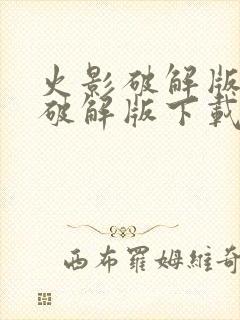 火影破解版
破解版下载
西布羅姆維奇